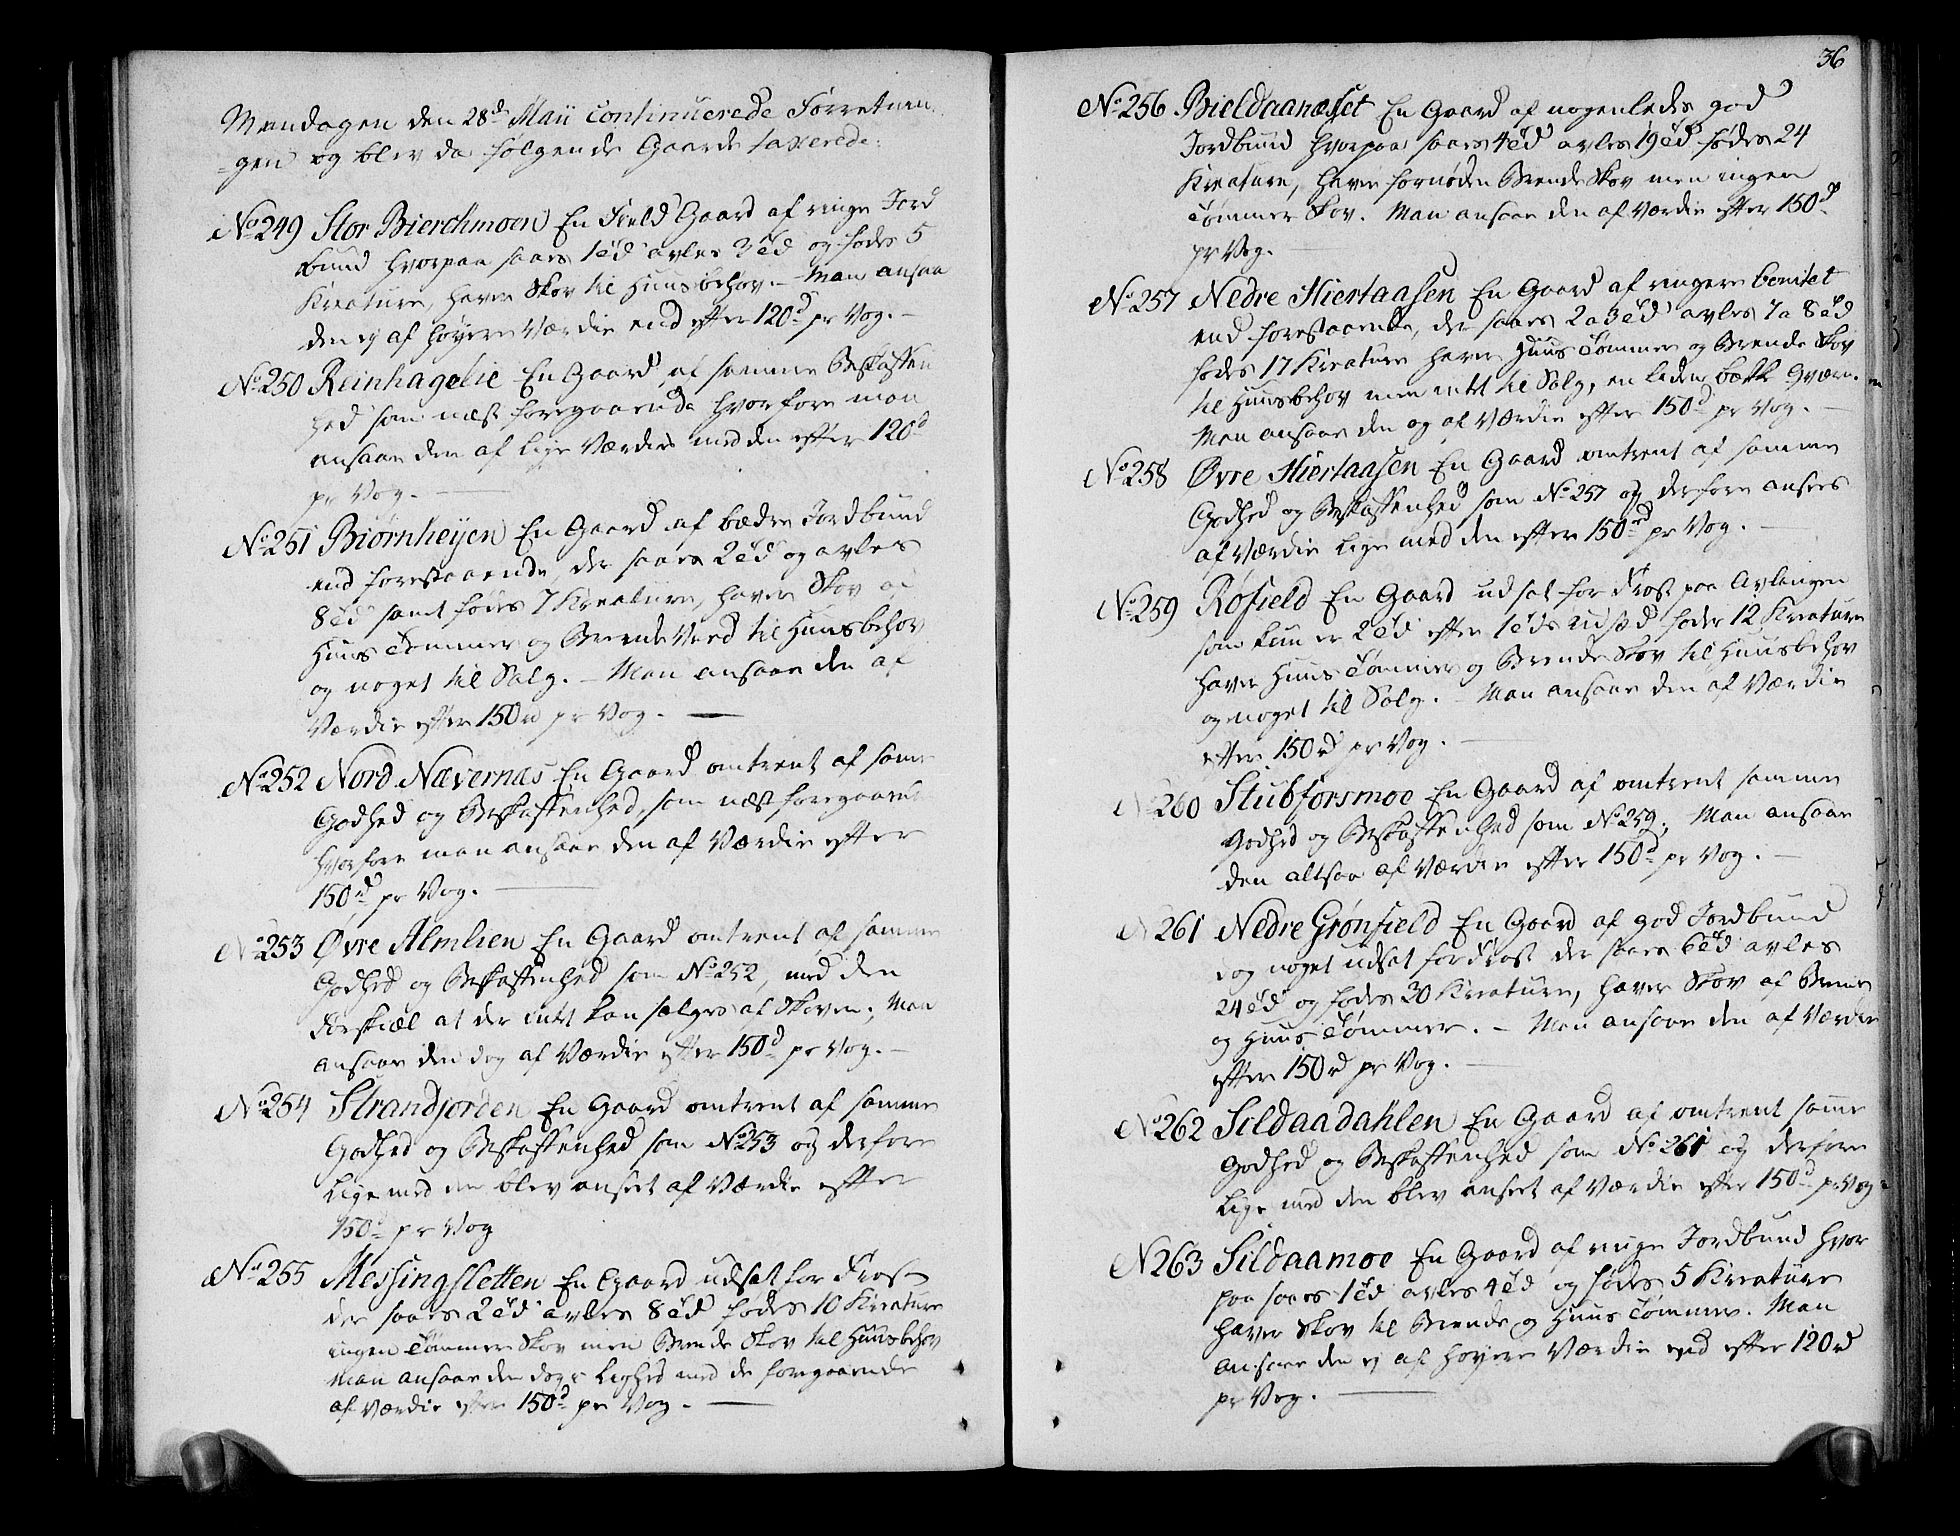 Mandagen den 28d Maii continuerede Forretnin
-gen og blev da følgende Gaarde taxerede:
No 249 Stor Bierchmoen En Field Gaard af ringe Jord
bund hvorpaa saaes 1 td avles 2 td og fødes 5
Kreature, haver Skov til Huusbehov. - Man ansaae
den ej af høyere Værdie end efter 120d pr Vog. -
No 250 Reinhagelie En Gaard af samme Beskaffen
hed som næst foregaaende hvorfore man
ansaae den af lige Værdie med den efter 120d
pr Vog.
No 251 Biørnheijen En Gaard af bædre Jordbund
end forestaaende, der saaes 2 td og avles
8 td samt fødes 7 Kreature, haver Skov af
Huus Tømmer og Brende Veed til Huusbehov
og noget til Salg. - Man ansaae den af
Værdie efter 150 rd pr Vog.
No 252 Nord Nævernæs En Gaard omtrent af samme
Godhed og Beskaffenhed, som næst foregaaende
hvorfore man ansaae den af Værdie efter
150rd pr Vog.
No 253 Øvre Almlien En Gaard omtrent af samme
Godhed og Beskaffenhed som No 252, med den
Forskiæl at der intet kan sælges af Skoven; Man
ansaae den dog af Værdie efter 150d pr Vog. -
No 254 Strandjorden En Gaard omtrent af samme
Godhed og Beskaffenhed som No 253 og derfore
lige med den blev anseet af Værdie efter
150d pr Vog
No 255 Messingsletten En Gaard udsat for Frost
der saaes 2 td avles 8 td fødes 10 Kreature
ingen Tømmer Skov men Brende Skov til Huusbehov
Man ansaae den dog i Lighed med de foregaaende
af Værdie efter 150d pr Vog.
36
No 256 Bieldaanæsset En Gaard af nogenledes god
Jordbund hvorpaa saaes 4 td avles 19 td fødes 24
Kreature, haver fornøden Brende Skov men ingen
Tømmer Skov. Man ansaae den af Værdie efter 150d
pr Vog.
No 257 Nedre Hiertaasen En Gaard af ringere bonitet
end forestaaende, der saaes 2 a 3 td avles 7 a 8 td
fødes 17 Kreature haver Huus Tømmer og Brende Skov
til Huusbehov men intet til Salg, en liden bække Qværn.
Man ansaae den og af Værdie efter 150d pr Vog.
No 258 Øvre Hiertaasen En Gaard omtrent af samme
Godhed og Beskaffenhed som No 257 og derfore ansees
af Værdie lige med den efter 150rd pr Vog.
No 259 Røfield En Gaard udsat for Frost paa Avlingen
som kun er 2 td efter 1 tds udsæd føder 12 Kreature
haver Huus Tømmer og Brende Skov til Huusbehov
og noget til Salg. - Man ansaae den af Værdie
efter 150 rd pr Vog.
No 260 Stubforsmoe En Gaard af omtrent samme
Godhed og Beskaffenhed som No 259; Man ansaae
den altsaa af Værdie efter 150d pr Vog. -
No 261 Nedre Grønfield En Gaard af god Jordbund
dog noget udsat for Frost der saaes 6 td avles
24 td og fødes 30 Kreature, haver Skov af Brende
og Huus Tømmer. - Man ansaae den af Værdie
efter 150 rd pr Vog.
No 262 Sildaadahlen En Gaard af omtrent samme
Godhed og Beskaffenhed som No 261 og derfore
lige med den blev anseet af Værdie efter 150d pr Vog
N 263 Sildaamoe En Gaard af ringe Jordbund hvor
paa saaes 1 td avles 4 td og fødes 5 Kreature
haver Skov til Brende og Huus Tømmer. Man
ansaae den ej af høyere Værdie end efter 120 rd
pr Vog.